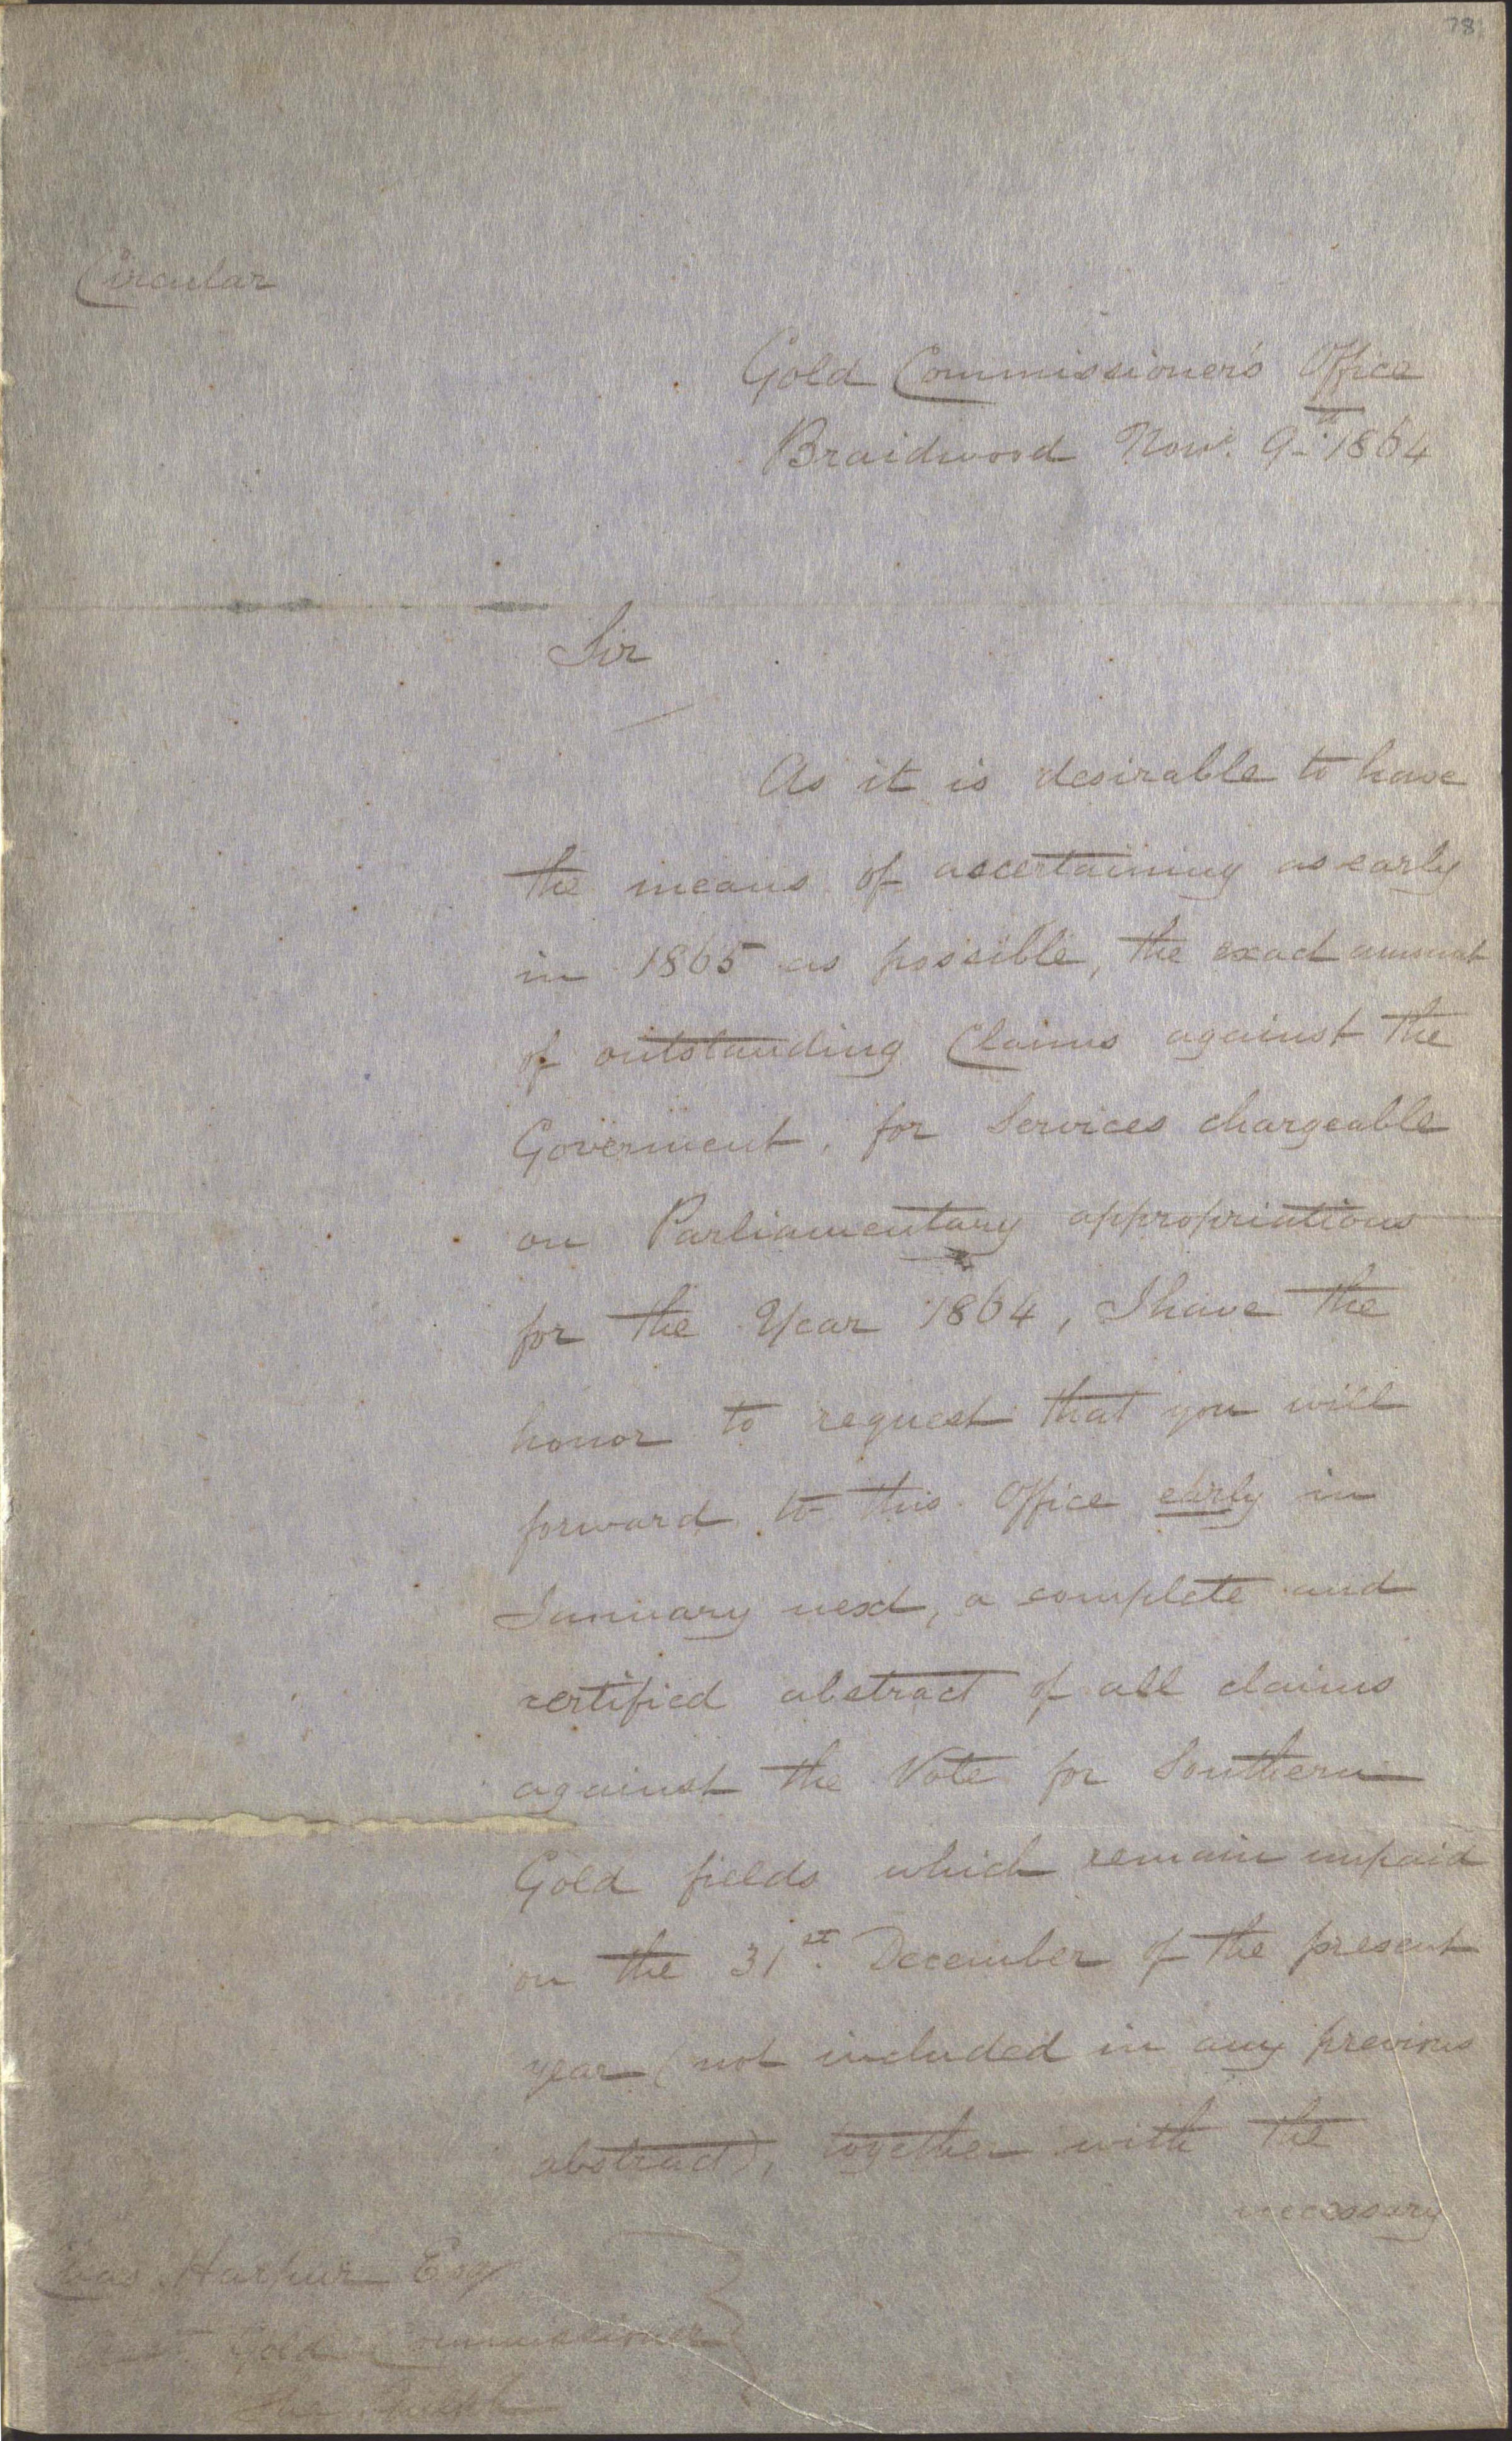 78
Circular
Gold Commissioner's Office
Braidwood Novr. 9th 1864
Sir
As it is desirable to have
the means of ascertaining as early
in 1865 as possible, the exact amount
of outstanding Claims against the
Goverment, for Services chargeable
on Parliamentary appropriations
for the Year 1864, I have the
honor to request that you will
forward to this Office early in
January next, a complete and
certified abstract of all claims
against the Vote for Southern
Gold fields which remain unpaid
on the 31st. December of the present
year (not included in any previous
abstract), together with the
necessary
Chas Harpur Esq
Asst. Gold Commissioner
The Gulph